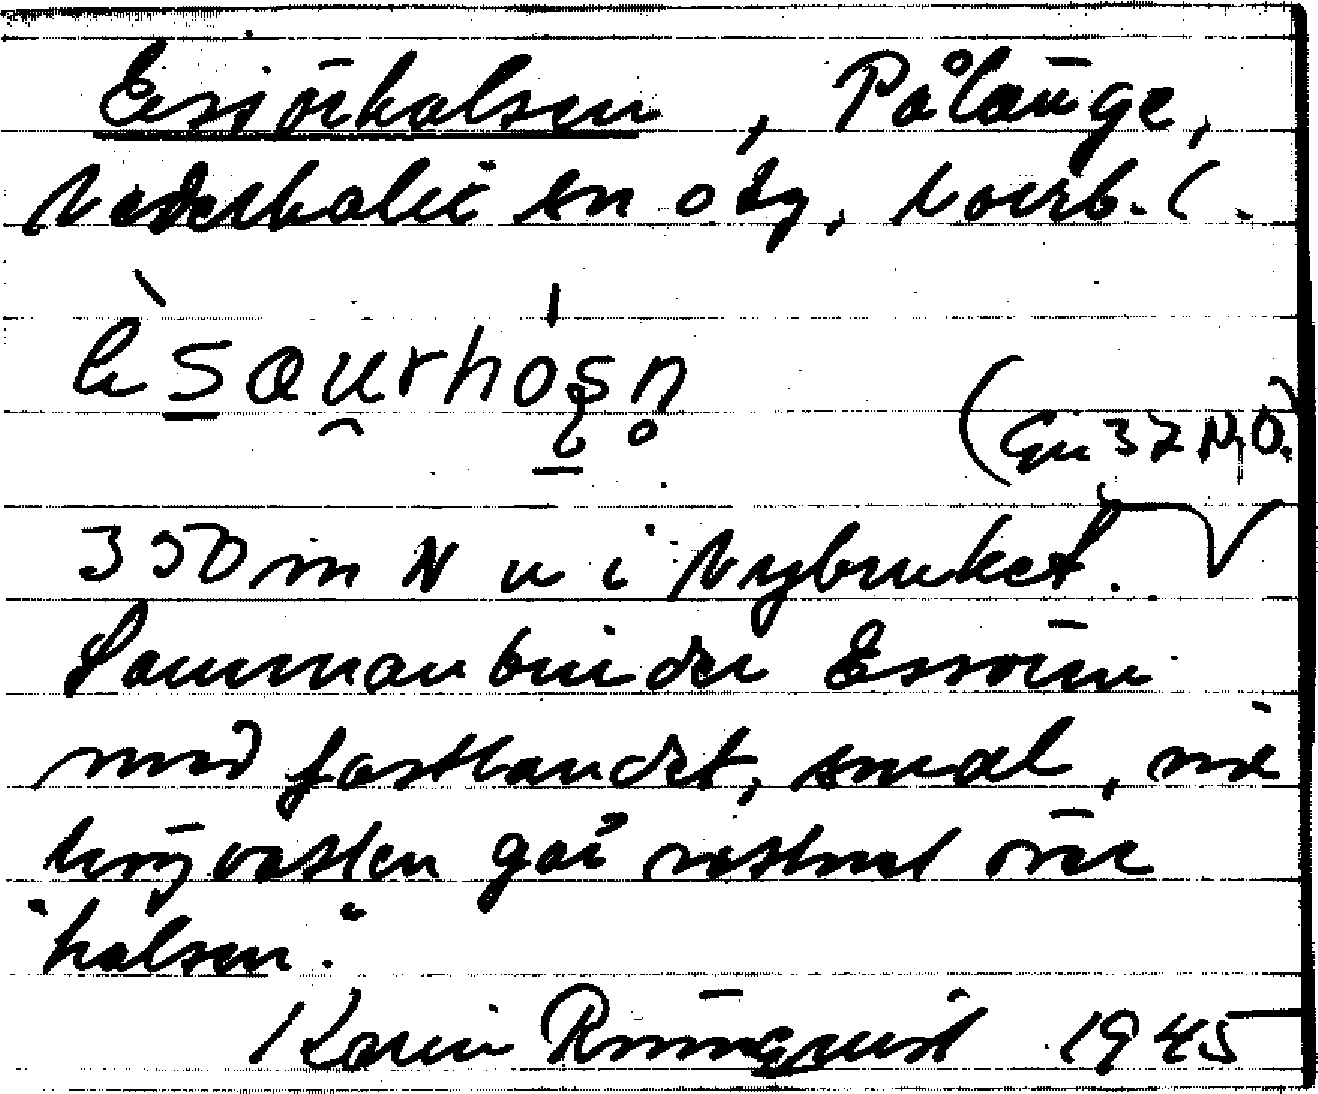 Essörhalsen, Pålänge,
Nederkalix sn o tg, Norrb. l.
(Gu 37 N.O.)
350 m N v i Nybruket.
Sammanbinder Essörn
med fastlandet, smal, när
högvatten går nästnet över
"halsen".
Karin Rönnquist 1945